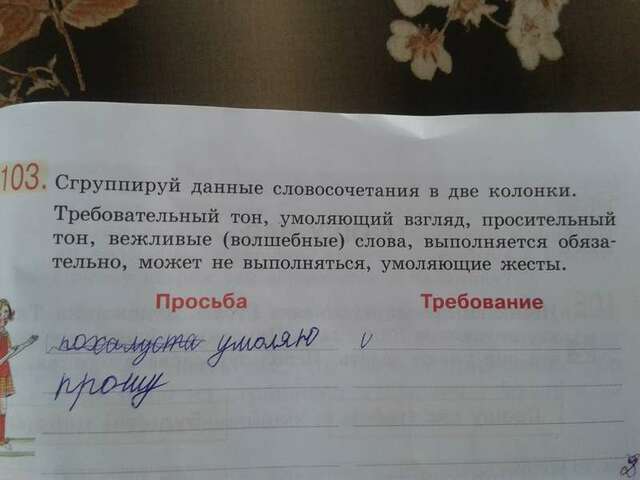 103. Сгруппируй данные словосочетания в две колонки.
Требовательный тон, умоляющий взгляд, просительный
тон, вежливые (волшебные) слова, выполняется обяза-
тельно, может не выполняться, умоляющие жесты.
Просьба Требование
пожалуста умоляю
прошу